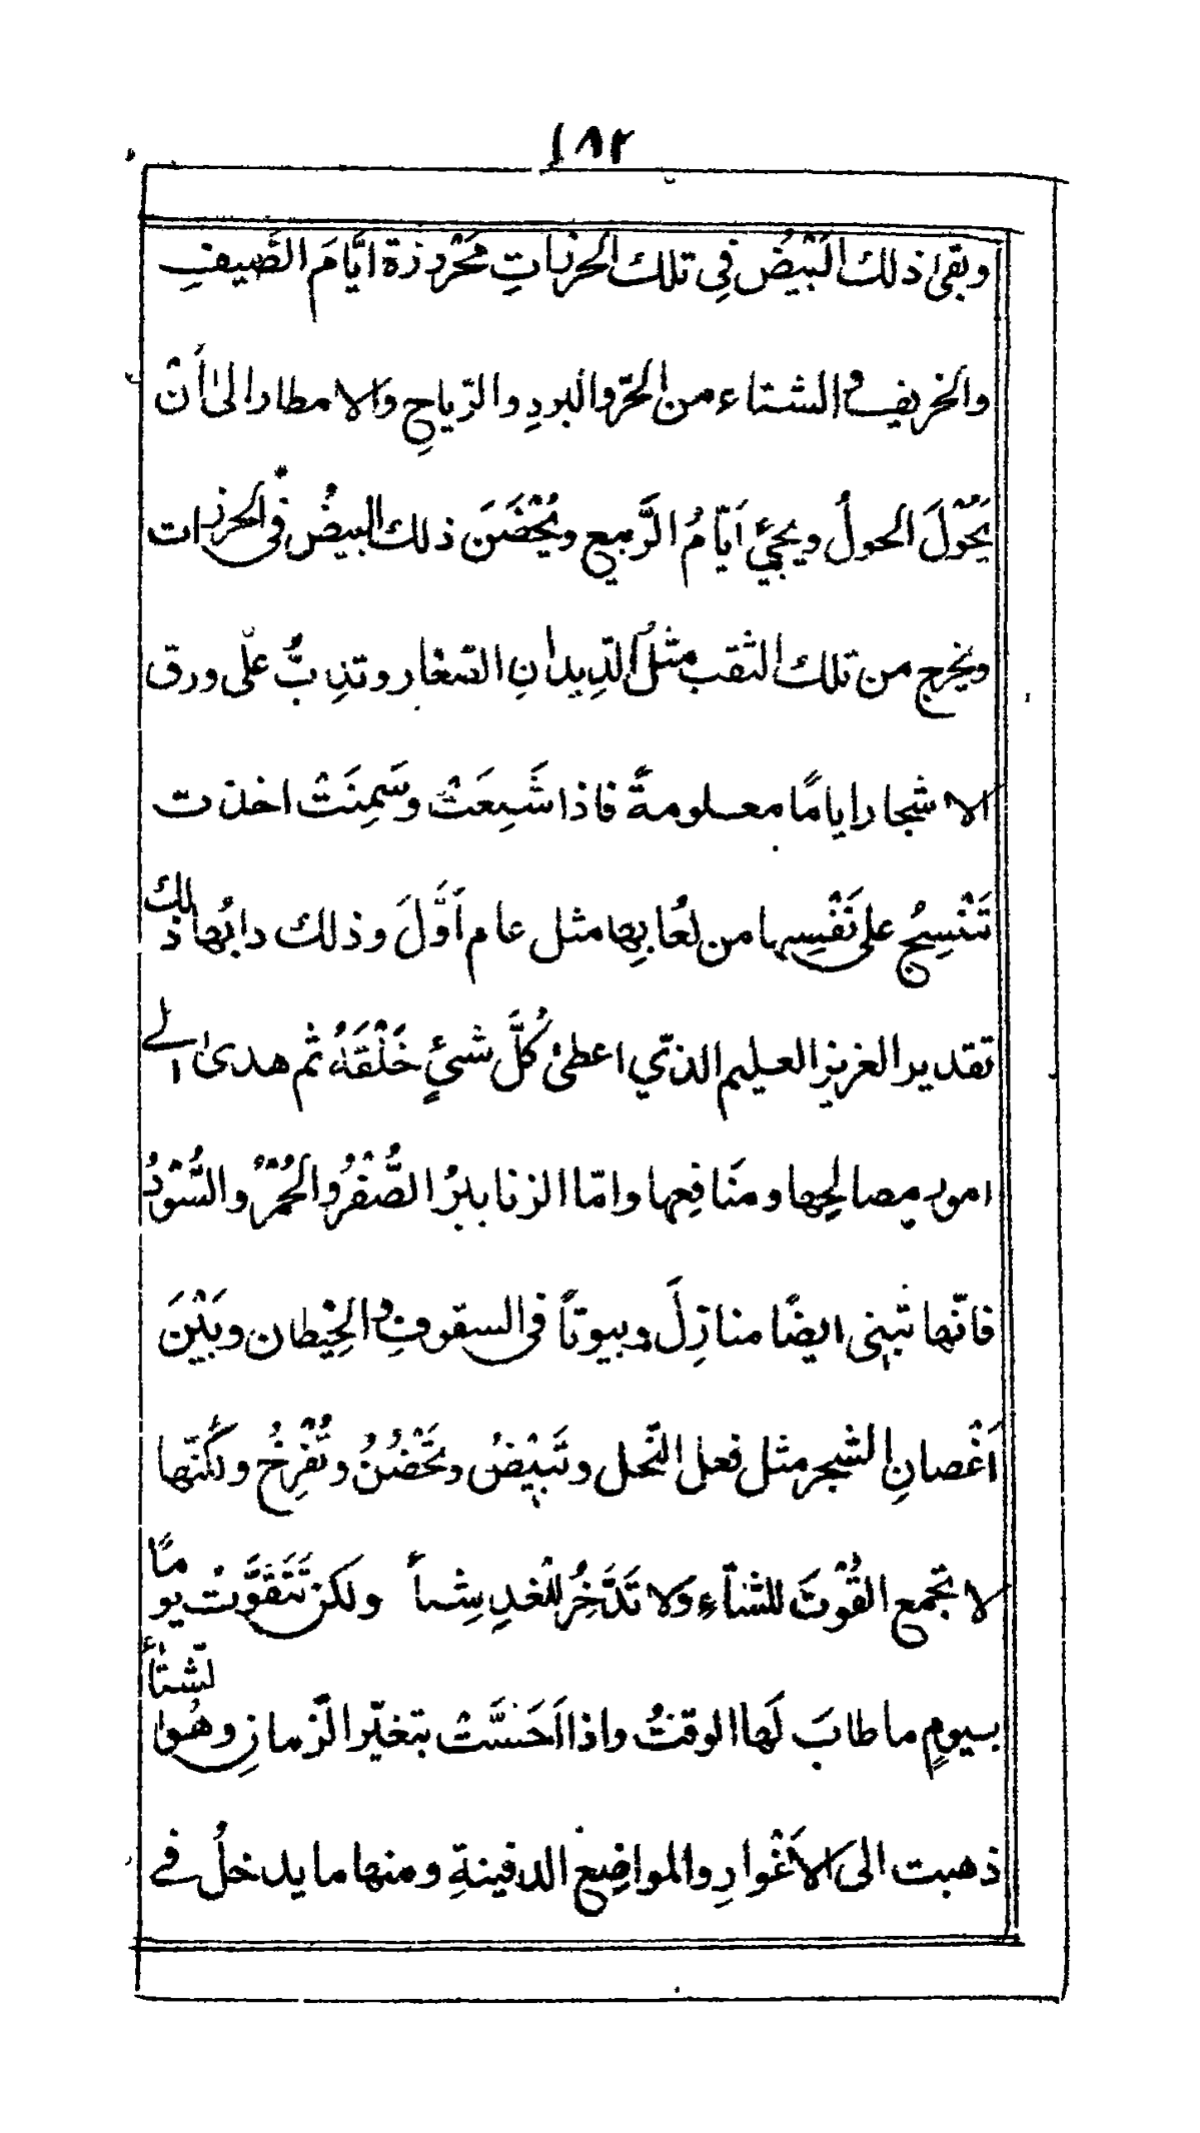 ١٨٢
وبقى ذلك البَيْضُ فِي تلك الحرزاتِ مَحْروزة ايَّامَ الصَّيفِ
والخريف والشتاء من الحرّ والبردِ والرّياحِ والامطار الىٰ أَنْ
يَحُوْلَ الحولُ ويجئَ اَيّامُ الرَّبيع ويُحْضَنَ ذلك البيضُ فى الحرزات
ويخرج من تلك الثقب مثلُ الدّيدانِ الصّغار وتذِبُّ علٰى ورق
الاشجار اياما معلومةً فاذا شَبِعَتْ وسَمِنَتْ اخذت
تَنْسِجُ على نَفْسِها من لُعابِها مثل عام اَوَّلَ وذلك دابُها ذلك
تقدير العزيز العليم الذّي اعطىٰ كُلَّ شئٍ خَلْقَهُ ثم هدىٰ الے
امور مصالحِها ومَنَافِعها وامّا الزنابيرُ الصُّفْرُ والحُمْرُ والسُّوْدُ
فانّها تَبنِى ايضًا منازِلَ وبيوتاً فى السقوفِ والحِيْطان وبَيْنَ
اَغْصانِ الشجر مثل فعل النّحل وتَبِيْضُ وتَحْضُنُ وتُفْرِخُ ولكنّها
لا تجمع القُوْتَ للشتآء ولا تَدَّخِرُ للغدِ شيأً ولكن تَتَقَوَّتُ يومًا
بيومٍ ما طابَ لَها الوقتُ واذا اَحَسَّتْ بتغيّر الزّمانِ وهُو الشتآءُ
ذهبت الى الاَغْوارِ والمواضِعِ الدفينةِ ومنها ما يدخلُ فے